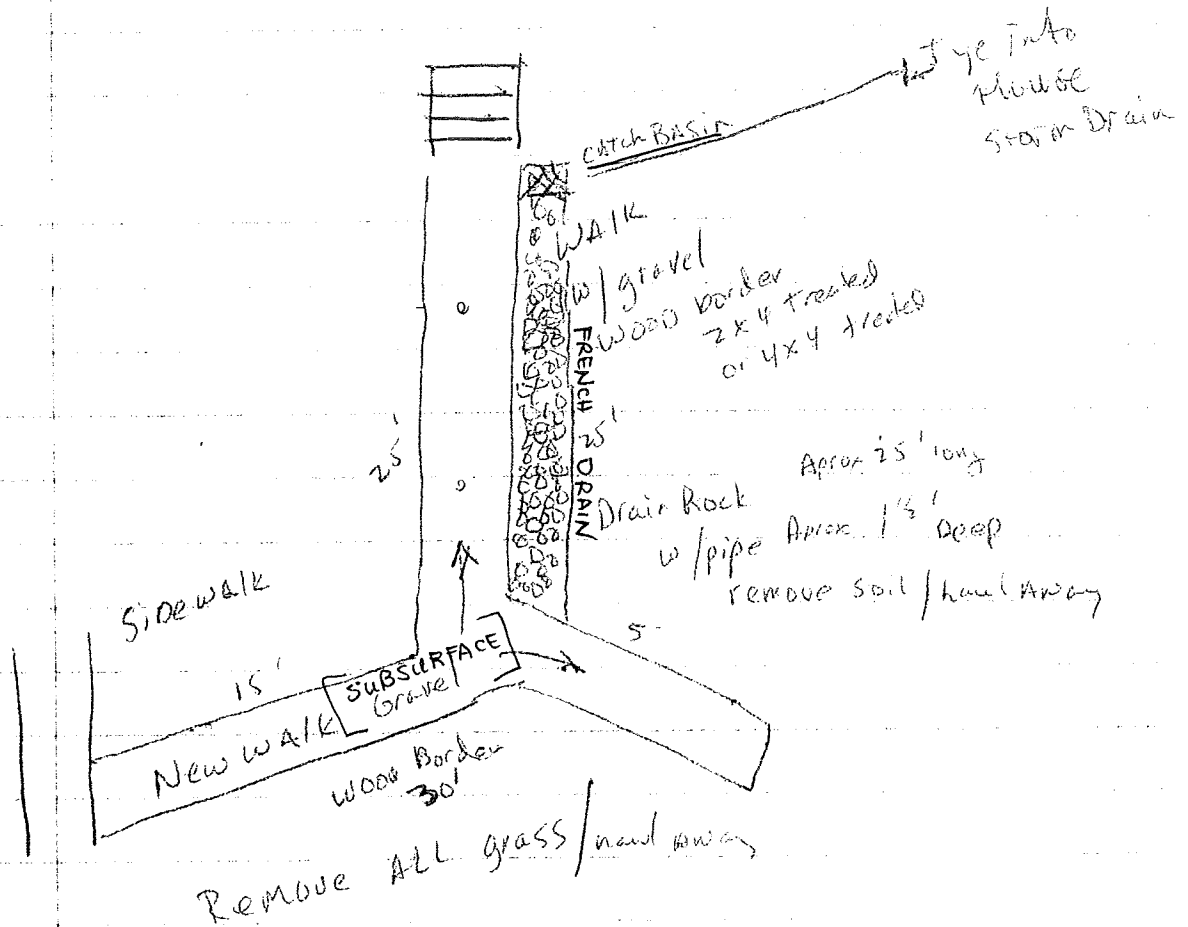 Tye Into
House
Storm Drain
Catch Basin
WALK
w/gravel
WOOD border
2x4 treated
or 4x4 treated
FRENCH DRAIN
25'
25'
Aprox 25' long
Drain Rock
w/pipe Aprox 1 1/2' Deep
remove soil/haul Away
Sidewalk
15'
[SUBSURFACE
Gravel]
5
New WALK
Wood Border
30'
Remove ALL grass/haul away